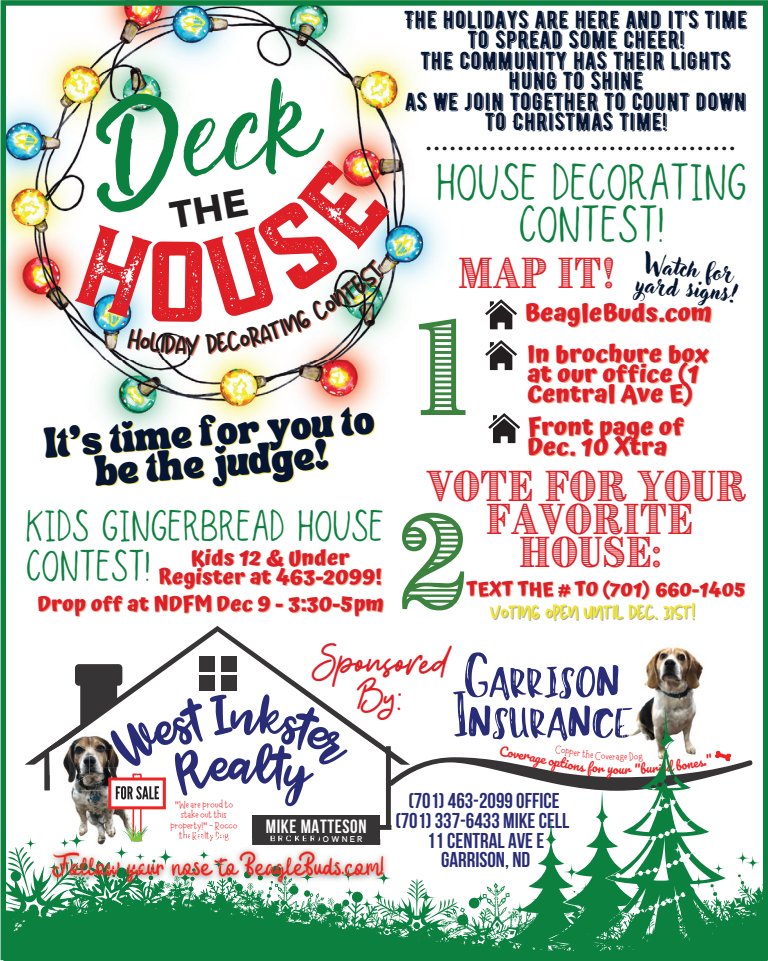 Deck
THE
HOUSE
HOLIDAY DECORATING CONTEST
It's time for you to
be the judge!
KIDS GINGERBREAD HOUSE
CONTEST!
Kids 12 & Under
Register at 463-2099!
Drop off at NDFM Dec 9 - 3:30-5pm
THE HOLIDAYS ARE HERE AND IT'S TIME
TO SPREAD SOME CHEER!
THE COMMUNITY HAS THEIR LIGHTS
HUNG TO SHINE
AS WE JOIN TOGETHER TO COUNT DOWN
TO CHRISTMAS TIME!
HOUSE DECORATING
CONTEST!
1
MAP IT!
Watch for
yard signs!
BeagleBuds.com
In brochure box
at our office (1
Central Ave E)
Front page of
Dec. 10 Xtra
2
VOTE FOR YOUR
FAVORITE
HOUSE:
TEXT THE # TO (701) 660-1405
VOTING OPEN UNTIL DEC. 31ST!
Sponsored
By:
West Inkster
Realty
FOR SALE
"We are proud to
stake out this
property!" - Rocco
the Realty Dog
MIKE MATTESON
BROKER/OWNER
Follow your nose to BeagleBuds.com!
GARRISON
INSURANCE
Copper the Coverage Dog
Coverage options for your "buried bones."
(701) 463-2099 OFFICE
(701) 337-6433 MIKE CELL
11 CENTRAL AVE E
GARRISON, ND